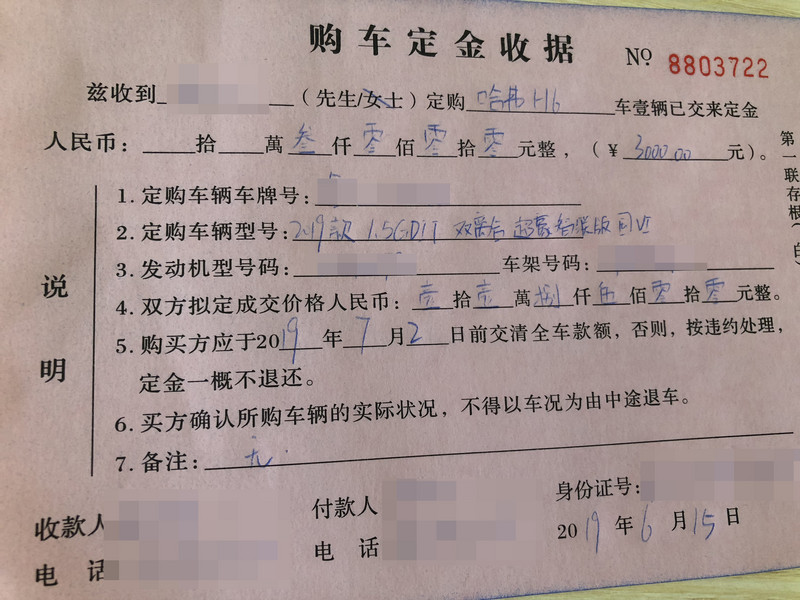 购车定金收据 № 8803722
兹收到____（先生/女士）定购 哈弗H6 车壹辆已交来定金
人民币：____拾____萬 叁 仟 零 佰 零 拾 零 元整，（¥ 3000.00 元）。
第一联存根（白）
说明
1. 定购车辆车牌号：
2. 定购车辆型号：2019款 1.5GDIT 双离合 超豪智联版 国Ⅵ
3. 发动机型号码：____车架号码：
4. 双方拟定成交价格人民币：壹 拾 壹 萬 捌 仟 伍 佰 零 拾 零 元整。
5. 购买方应于2019年7月2日前交清全车款额，否则，按违约处理，
定金一概不退还。
6. 买方确认所购车辆的实际状况，不得以车况为由中途退车。
7. 备注：无.
收款人 付款人 身份证号：
电 话 电 话 2019年6月15日